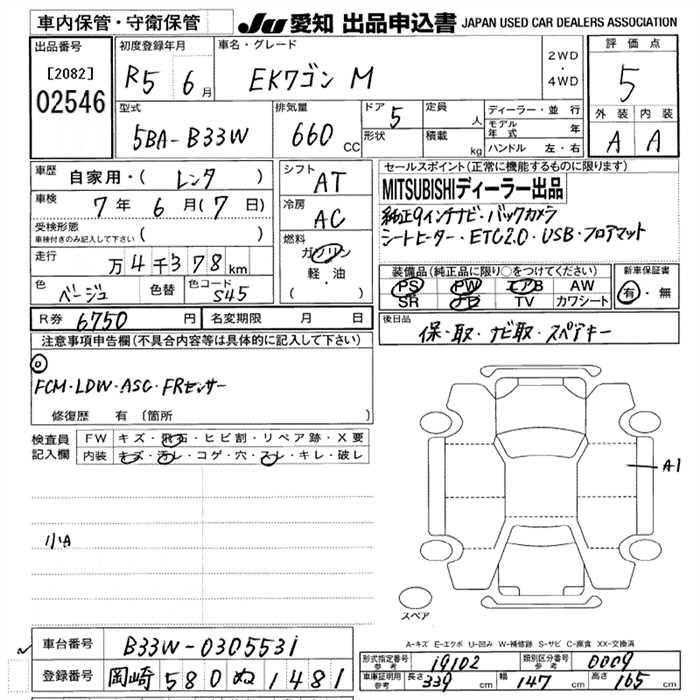 車内保管・守衛保管
JU 愛知 出品申込書 JAPAN USED CAR DEALERS ASSOCIATION
出品番号
[2082]
02546
初度登録年月
R5 6月
車名・グレード
EKワゴン M
2WD
・
4WD
評価点
5
外装 内装
A A
型式
5BA-B33W
排気量
660 CC
ドア 5
形状
定員 人
積載 kg
ディーラー・並 行
モデル年式 年
ハンドル 左・右
車歴 自家用・( レンタ )
車検 7年 6月(7日)
受検形態
車検付きのみ記入して下さい ( )
走行 万4千378km
色 ベージュ 色替 色コード S45
シフト AT
冷房 AC
燃料
ガソリン
軽・油
( )
セールスポイント(正常に機能するものに限ります)
MITSUBISHIディーラー出品
純正9インチナビ・バックカメラ
シートヒーター・ETC2.0・USB・フロアマット
装備品(純正品に限り○をつけてください)
PS PW エアB AW
SR ナビ TV カワシート
新車保証書
有・無
R券 6750 円 名変期限 月 日
後日品
保・取・ナビ取・スペアキー
注意事項申告欄(不具合内容等は具体的に記入して下さい)
◎
FCM・LDW・ASC・FRセンサー
修復歴 有 〔箇所
検査員記入欄
FW キズ・飛石・ヒビ割・リペア跡・X要
内装 キズ・汚レ・コゲ・穴・スレ・キレ・破レ
小A
A1
スペア
A-キズ E-エクボ U-凹み W-補修跡 S-サビ C-腐食 XX-交換済
車台番号 B33W-0305531
登録番号 岡崎 580 ぬ 1481
形式指定番号 参考 19102 類別区分番号 参考 0009
車庫証明用 参考 長さ 339 cm 幅 147 cm 高さ 165 cm